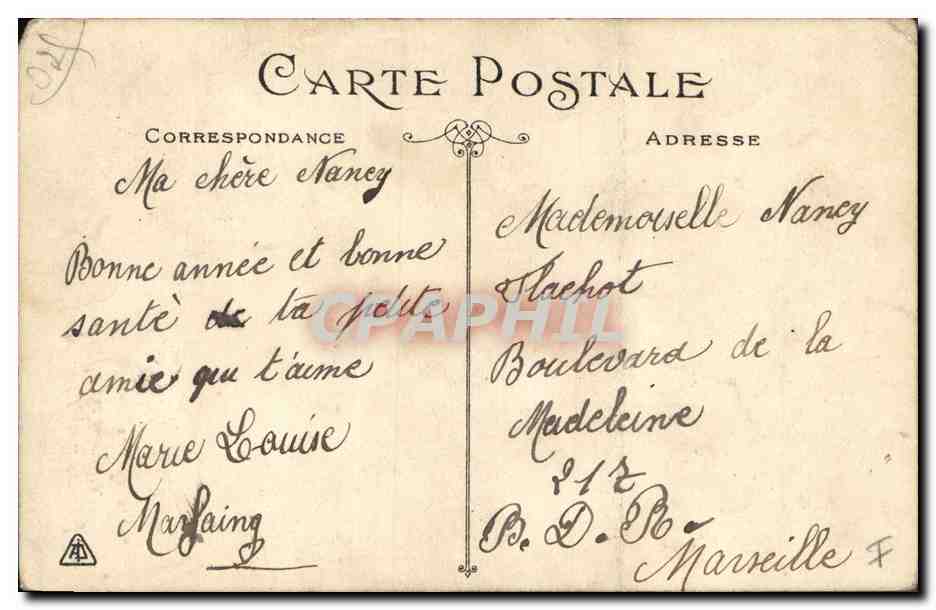 CARTE POSTALE
CORRESPONDANCE
ADRESSE
Ma chère Nancy
Bonne année et bonne
santè de ta petite
amie qui t'aime
Marie Louise
Marsaing
Mademoiselle Nancy
Flachot
Boulevard de la
Madeleine
217
B. D. R.
Marseille
CPAPHIL